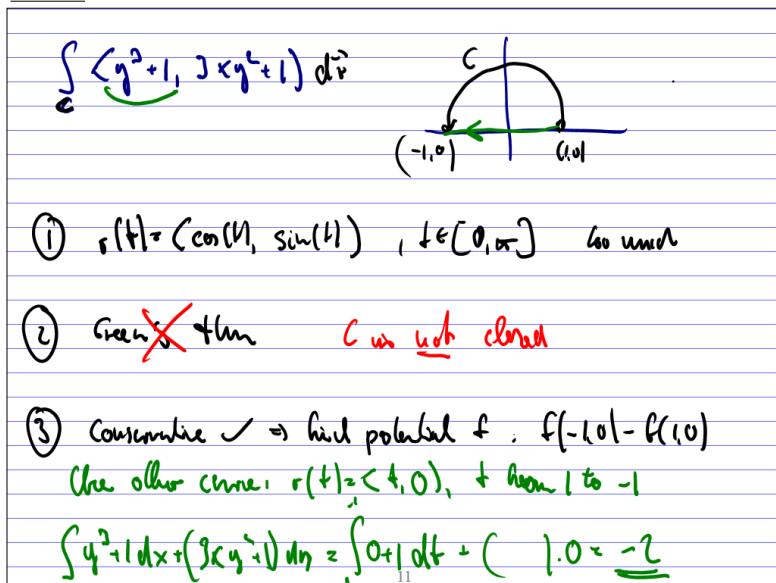 ∫_C ⟨y³+1, 3xy²+1⟩ dr⃗
C
(-1,0) (1,0)
① r(t)=⟨cos(t), sin(t)⟩, t∈[0,π] too much
② Green's thm C is not closed
③ Conservative ✓ ⇒ find potential f. f(-1,0)-f(1,0)
Use other curve: r(t)=⟨t,0⟩, t from 1 to -1
∫y³+1 dx+(3xy²+1)dy = ∫0+1 dt + ( ).0 = -2
11